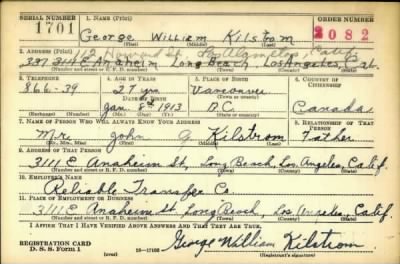 SERIAL NUMBER 1. NAME (Print) ORDER NUMBER
1701 George William Kilstrom 2082
(First) (Middle) (Last)
2. ADDRESS (Print) 112 Howard St. Los Alamitos, Calif.
3111 E Anaheim Long Beach, Los Angeles Cal.
(Number and street or R. F. D. number) (Town) (County) (State)
3. TELEPHONE 4. AGE IN YEARS 5. PLACE OF BIRTH 6. COUNTRY OF CITIZENSHIP
866-39 27 yrs Vancouver
DATE OF BIRTH (Town or county)
Jan. 8th 1913 B.C. Canada
(Exchange) (Number) (Mo.) (Day) (Yr.) (State or country)
7. NAME OF PERSON WHO WILL ALWAYS KNOW YOUR ADDRESS 8. RELATIONSHIP OF THAT PERSON
Mr John G. Kilstrom Father
(Mr., Mrs., Miss) (First) (Middle) (Last)
9. ADDRESS OF THAT PERSON
3111 E Anaheim St, Long Beach, Los Angeles, Calif.
(Number and street or R. F. D. number) (Town) (County) (State)
10. EMPLOYER'S NAME
Reliable Transfer Co.
11. PLACE OF EMPLOYMENT OR BUSINESS
3111 E Anaheim St, Long Beach, Los Angeles, Calif.
(Number and street or R. F. D. number) (Town) (County) (State)
I AFFIRM THAT I HAVE VERIFIED ABOVE ANSWERS AND THAT THEY ARE TRUE.
REGISTRATION CARD George William Kilstrom
D. S. S. Form 1 (over) 16—17105 (Registrant's signature)